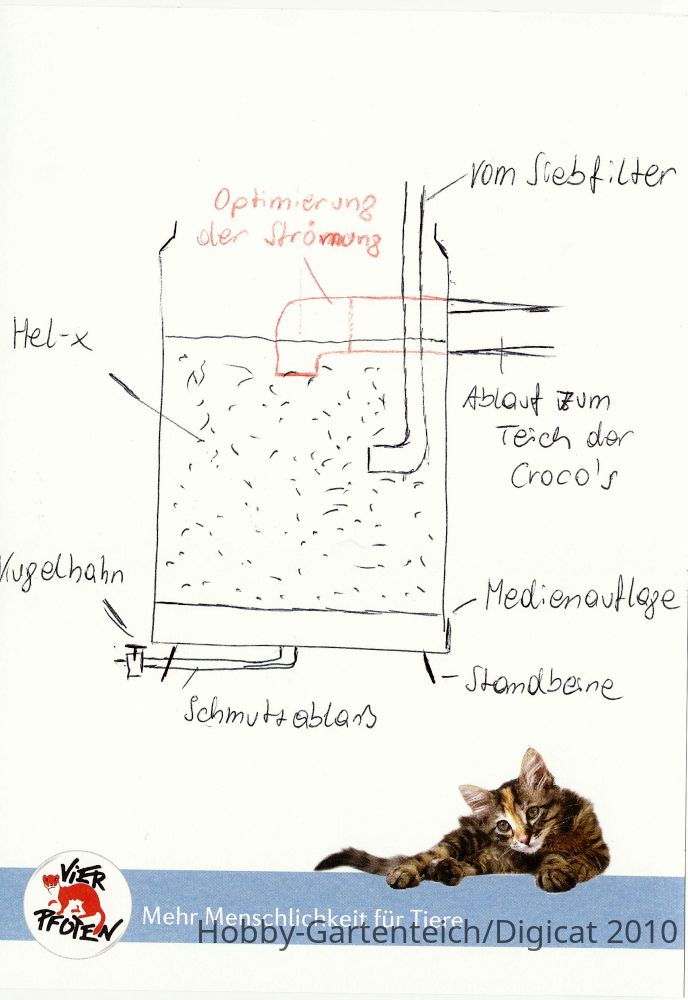 vom Siebfilter
Optimierung
der Strömung
Hel-x
Ablauf zum
Teich der
Croco's
Kugelhahn
Medienauflage
Standbeine
Schmutzablaß
VIER
PFOTEN
Mehr Menschlichkeit für Tiere
Hobby-Gartenteich/Digicat 2010